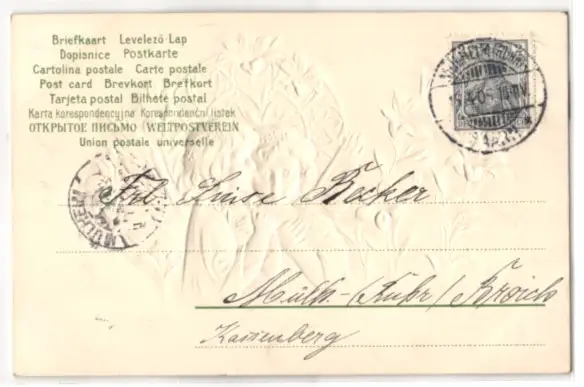 Briefkaart Levelező-Lap
Dopisnice Postkarte
Cartolina postale Carte postale
Post card Brevkort Brefkort
Tarjeta postal Bilhete postal
Karta korespondencyjna Korespondenčni listek
ОТКРЫТОЕ ПИСЬМО (WELTPOSTVEREIN
Union postale universelle
Frl. Luise Becker
Mülh.-(Ruhr) Broich
Kassenberg
MÜLHEIM